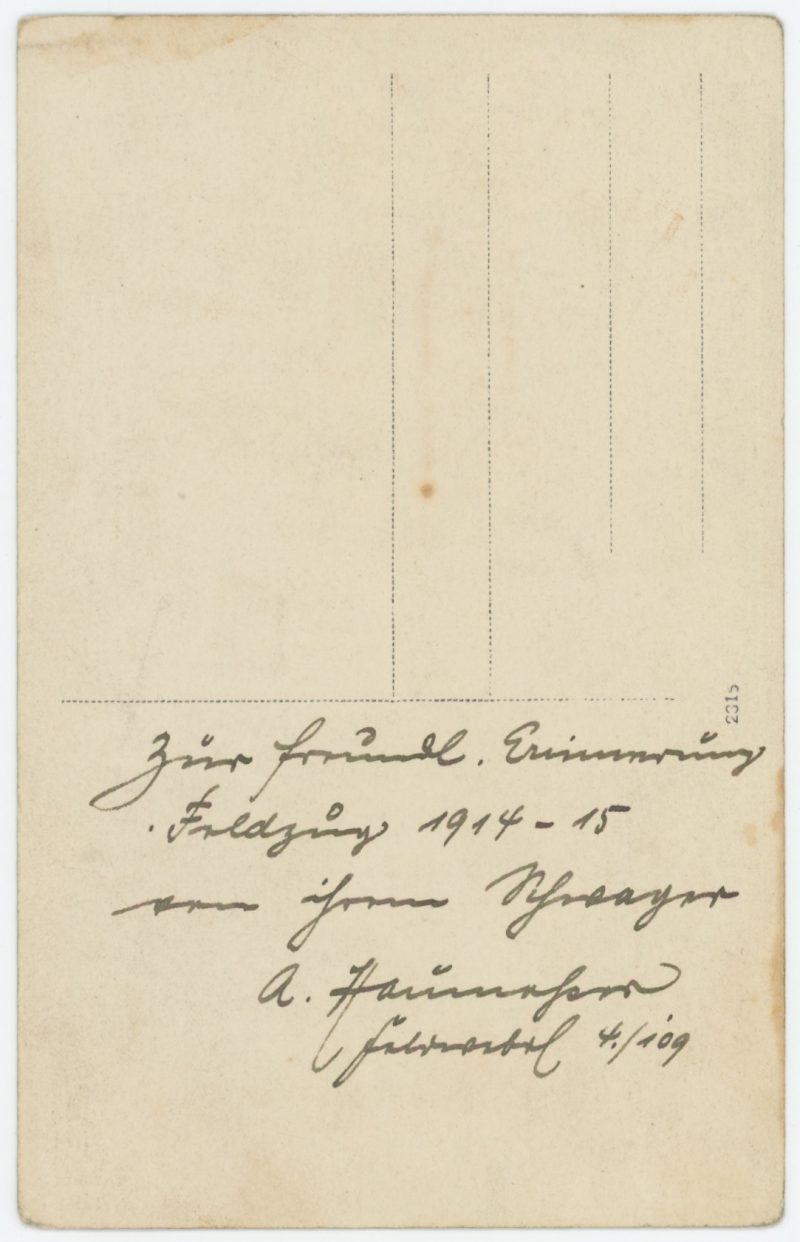 2315
Zur freundl. Erinnerung
Feldzug 1914-15
von ihrem Schwager
A.
Feldwebel 4./109